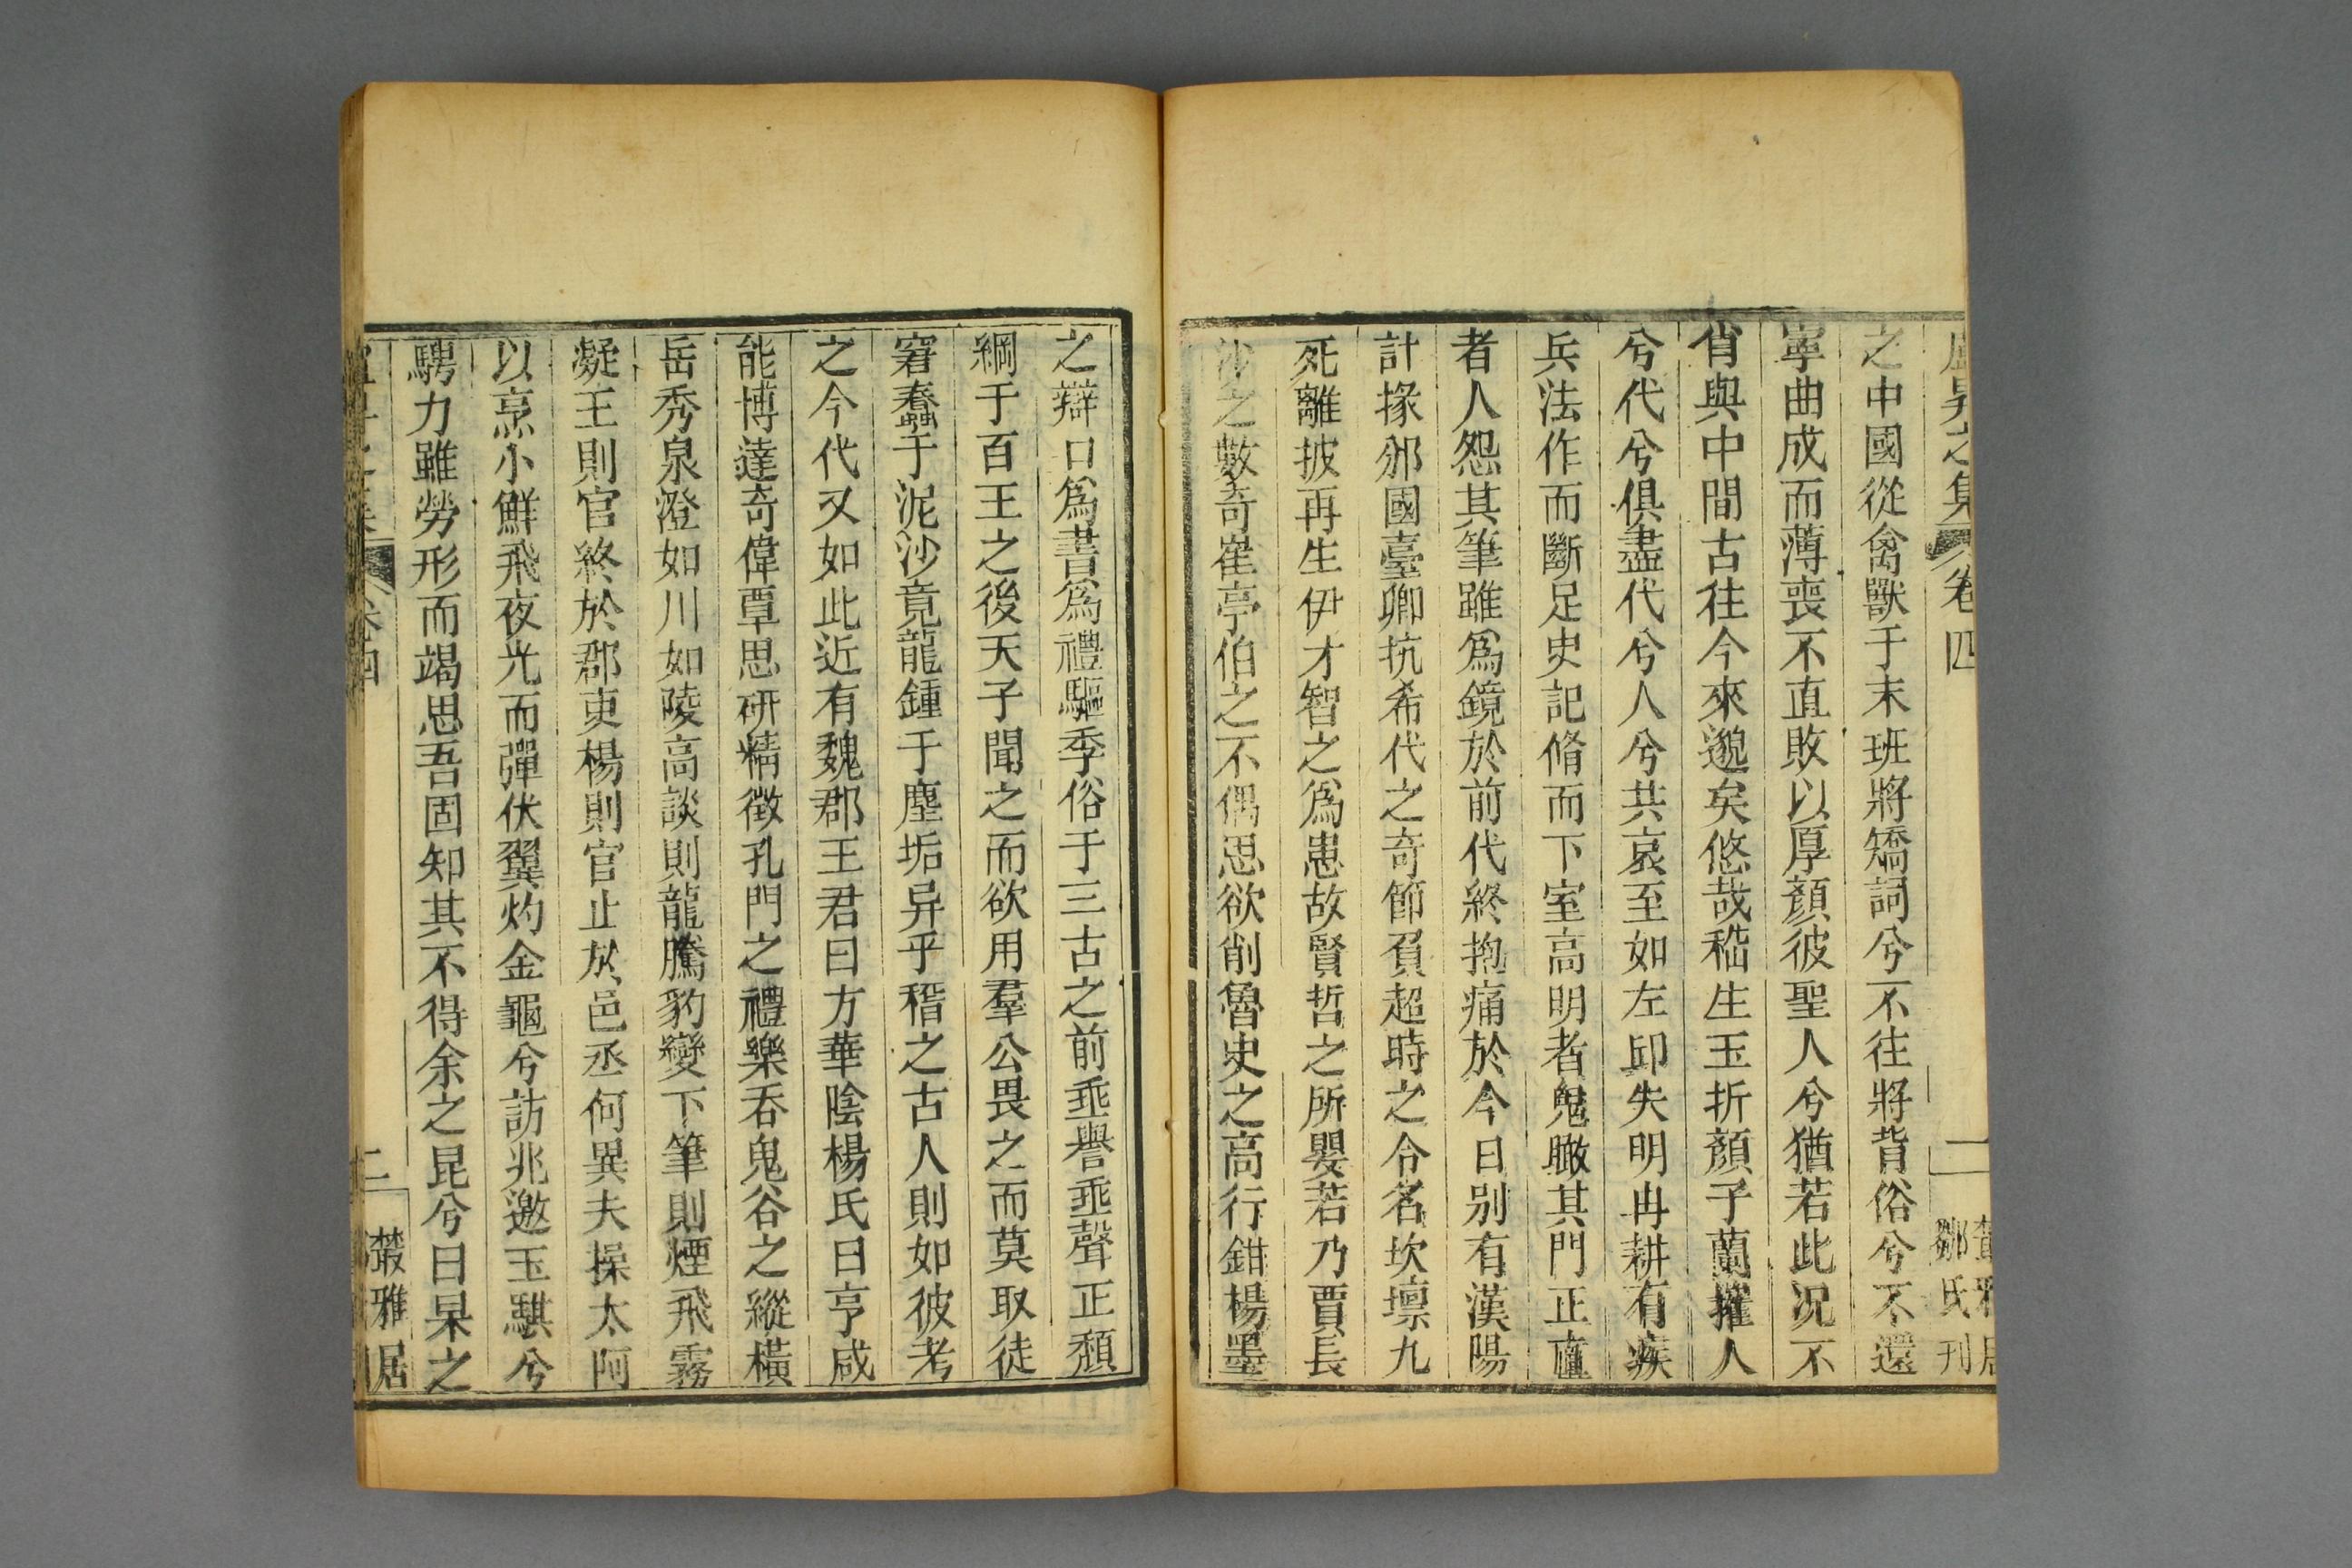 盧昇之集 卷四 一 叢雅居 鄒氏刊
之中國從禽獸于末班將矯詞兮不往將背俗兮不還
寧曲成而薄喪不直敗以厚顏彼聖人兮猶若此况不
肖與中間古往今來邈矣悠哉嵇生玉折顏子蘭摧人
兮代兮俱盡代兮人兮共哀至如左邱失明冉耕有疾
兵法作而斷足史記脩而下室高明者鬼瞰其門正直
者人怨其筆雖爲鏡於前代終抱痛於今日别有漢陽
計掾邠國臺卿抗希代之奇節負超時之合名坎壈九
死離披再生伊才智之爲患故賢哲之所嬰若乃賈長
沙之數奇崔亭伯之不偶思欲削魯史之高行鉗楊墨
之辯口爲書爲禮驅季俗于三古之前垂譽垂聲正頹
綱于百王之後天子聞之而欲用羣公畏之而莫取徒
窘蠢于泥沙竟龍鍾于塵垢异乎稽之古人則如彼考
之今代又如此近有魏郡王君曰方華陰楊氏曰亨咸
能博達奇偉覃思研精徵孔門之禮樂吞鬼谷之縱橫
岳秀泉澄如川如陵高談則龍騰豹變下筆則煙飛霧
凝王則官終於郡吏楊則官止於邑丞何異夫操太阿
以烹小鮮飛夜光而彈伏翼灼金龜兮訪兆邀玉騏兮
騁力雖勞形而竭思吾固知其不得余之昆兮曰杲之
卷四 二 叢雅居